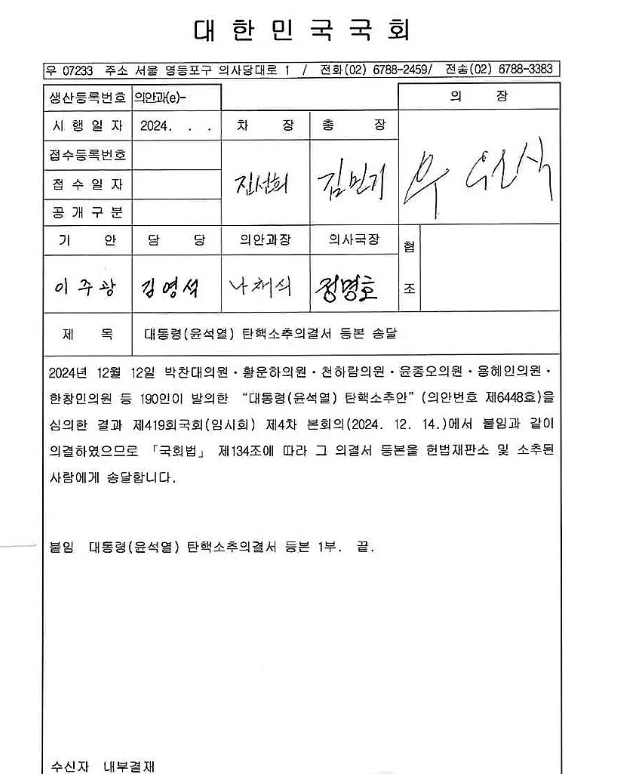 대한민국국회
우 07233 주소 서울 영등포구 의사당대로 1 / 전화(02) 6788-2459/ 전송(02) 6788-3383
생산등록번호 의안과(e)- 의 장
시행일자 2024. . . 차 장 총 장
접수등록번호
접수일자 진선희 김민기 우원식
공개구분
기 안 담 당 의안과장 의사국장 협
조
이주광 김영석 나채식 정명호
제 목 대통령(윤석열) 탄핵소추의결서 등본 송달
2024년 12월 12일 박찬대의원·황운하의원·천하람의원·윤종오의원·용혜인의원·
한창민의원 등 190인이 발의한 “대통령(윤석열) 탄핵소추안”(의안번호 제6448호)을
심의한 결과 제419회국회(임시회) 제4차 본회의(2024. 12. 14.)에서 붙임과 같이
의결하였으므로 「국회법」 제134조에 따라 그 의결서 등본을 헌법재판소 및 소추된
사람에게 송달합니다.
붙임 대통령(윤석열) 탄핵소추의결서 등본 1부. 끝.
수신자 내부결재